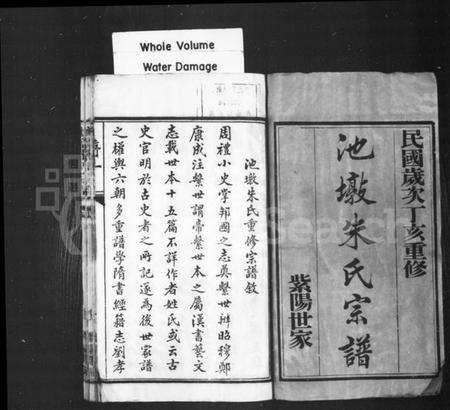 Whole Volume
Water Damage
民國歲次丁亥重修
池墩朱氏宗譜
紫陽世家
池墩朱氏重修宗譜敘
周禮小史掌邦國之志奠繫世辨昭穆鄭
康成注繫世謂帝繫世本之屬漢書藝文
志載世本十五篇不詳作者姓氏或云古
史官明於古史者之所記遂為後世家譜
之權輿六朝多重譜學隋書經籍志劉孝